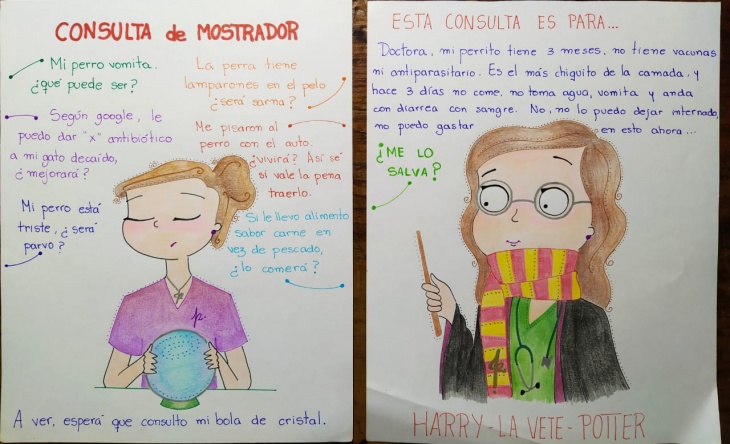 CONSULTA de MOSTRADOR
Mi perro vomita.
¿qué puede ser?
La perra tiene
lamparones en el pelo
¿será sarna?
Según google, le
puedo dar "x" antibiótico
a mi gato decaído,
¿mejorará?
Me pisaron al
perro con el auto.
¿vivirá? Así sé
si vale la pena
traerlo.
Mi perro está
triste, ¿será
parvo?
Si le llevo alimento
sabor carne en
vez de pescado,
¿lo comerá?
A ver, esperá que consulto mi bola de cristal.
ESTA CONSULTA ES PARA...
Doctora, mi perrito tiene 3 meses, no tiene vacunas
ni antiparasitario. Es el más chiquito de la camada, y
hace 3 días no come, no toma agua, vomita y anda
con diarrea con sangre. No, no lo puedo dejar internado,
no puedo gastar en esto ahora...
¿ME LO
SALVA?
HARRY-LA VETE-POTTER